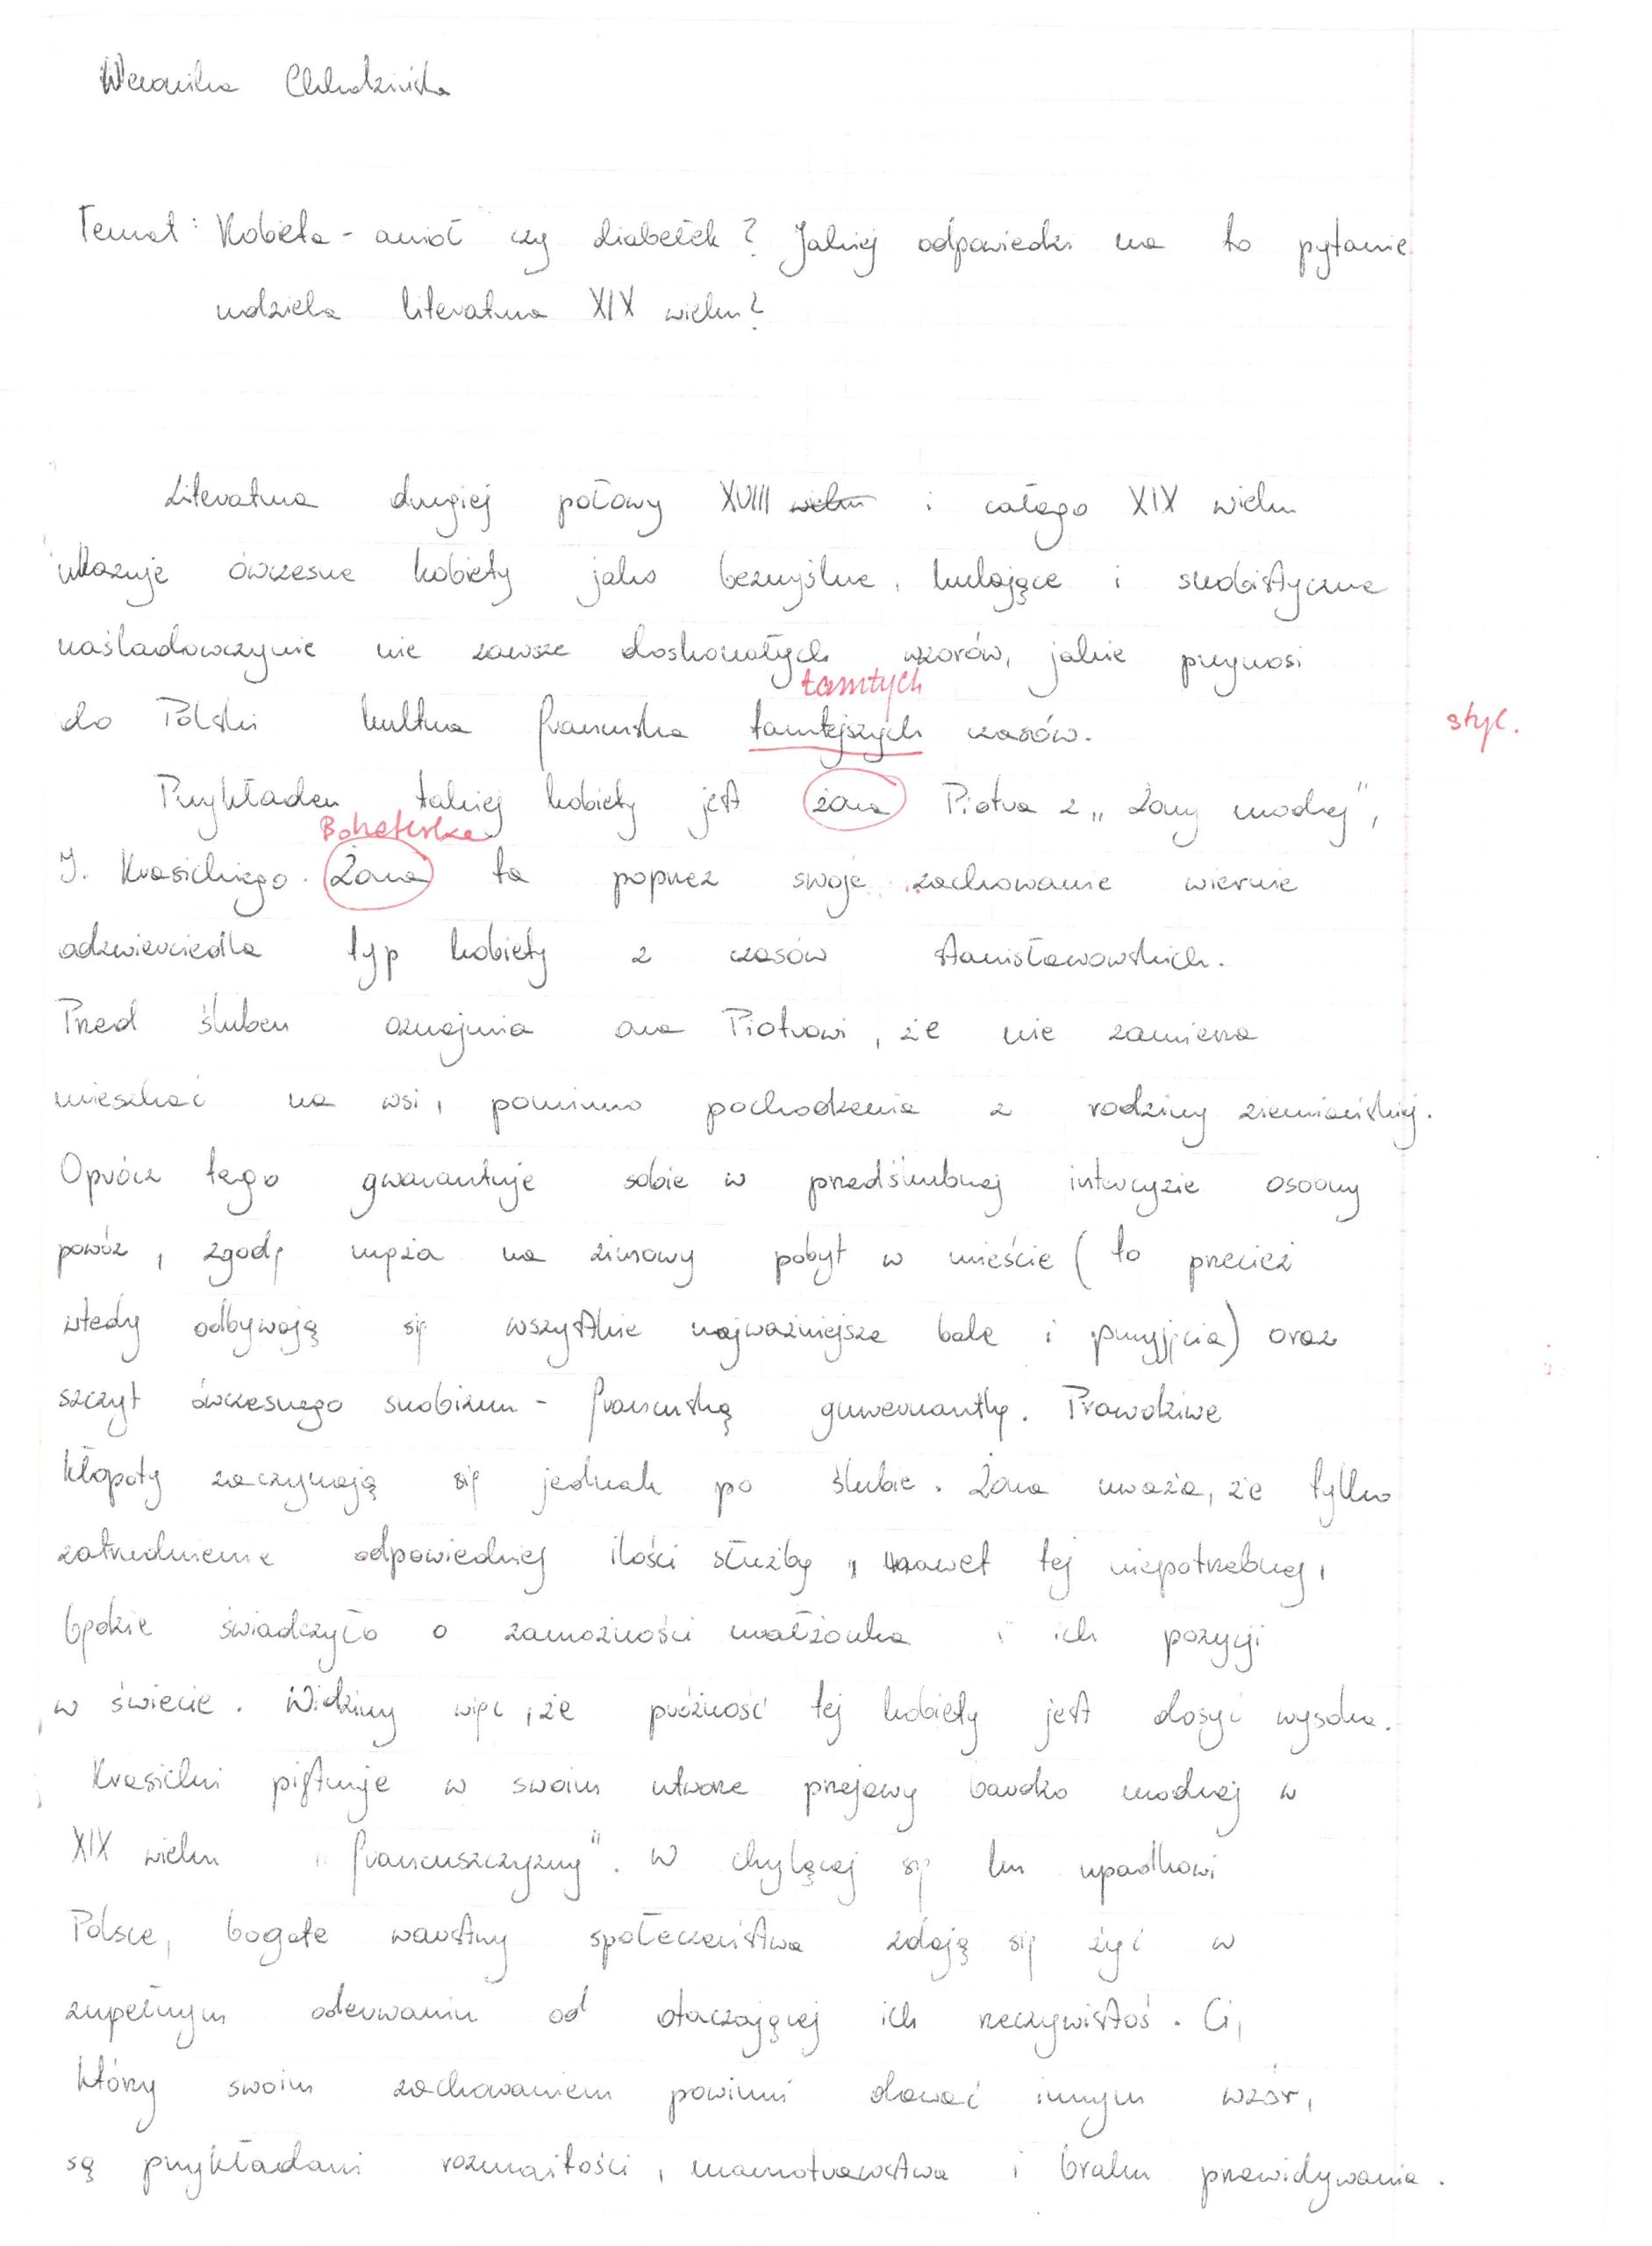 Weronika
Temat: Kobieta - anioł czy diabełek? Jakiej odpowiedzi na to pytanie
udziela literatura XIX wieku?
Literatura drugiej połowy XVIII wieku i całego XIX wieku
ukazuje ówczesne kobiety jako bezmyślne, hulające i snobistyczne
naśladowczynie nie zawsze doskonałych wzorów, jakie przynosi
tamtych
do Polski kultura francuska tamtejszych czasów. styl.
Przykładem takiej kobiety jest żona Piotra z „Żony modnej",
Bohaterka
I. Krasickiego. Żona ta poprzez swoje zachowanie wiernie
odzwierciedla typ kobiety z czasów stanisławowskich.
Przed ślubem oznajmia ona Piotrowi, że nie zamierza
mieszkać na wsi, pomimo pochodzenia z rodziny ziemiańskiej.
Oprócz tego gwarantuje sobie w przedślubnej intercyzie osobny
powóz, zgodę męża na zimowy pobyt w mieście (to przecież
wtedy odbywają się wszystkie najważniejsze bale i przyjęcia) oraz
szczyt ówczesnego snobizmu - francuską guwernantkę. Prawdziwe
kłopoty zaczynają się jednak po ślubie. Żona uważa, że tylko
zatrudnienie odpowiedniej ilości służby, nawet tej niepotrzebnej,
będzie świadczyło o zamożności małżonka i ich pozycji
w świecie. Widzimy więc, że próżność tej kobiety jest dosyć wysoka.
Krasicki piętnuje w swoim utworze przejawy bardzo modnej w
XIX wieku „francuszczyzny". W chylącej się ku upadkowi
Polsce, bogate warstwy społeczeństwa zdają się żyć w
zupełnym oderwaniu od otaczającej ich rzeczywistoś. Ci,
którzy swoim zachowaniem powinni dawać innym wzór,
są przykładami rozmaitości, marnotrawstwa i braku przewidywania.